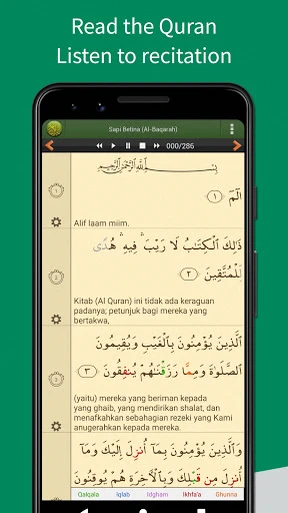 Read the Quran
Listen to recitation
Sapi Betina (Al-Baqarah)
000/286
بِسْمِ اللَّهِ الرَّحْمَٰنِ الرَّحِيمِ
الٓمٓ ﴿١﴾
1
Alif laam miim.
ذَٰلِكَ الْكِتَابُ لَا رَيْبَ ۛ فِيهِ ۛ هُدًى
لِّلْمُتَّقِينَ ﴿٢﴾
2
Kitab (Al Quran) ini tidak ada keraguan
padanya; petunjuk bagi mereka yang
bertakwa,
الَّذِينَ يُؤْمِنُونَ بِالْغَيْبِ وَيُقِيمُونَ
الصَّلَاةَ وَمِمَّا رَزَقْنَاهُمْ يُنفِقُونَ ﴿٣﴾
3
(yaitu) mereka yang beriman kepada
yang ghaib, yang mendirikan shalat, dan
menafkahkan sebahagian rezeki yang Kami
anugerahkan kepada mereka.
وَالَّذِينَ يُؤْمِنُونَ بِمَا أُنزِلَ إِلَيْكَ وَمَا
أُنزِلَ مِن قَبْلِكَ وَبِالْآخِرَةِ هُمْ يُوقِنُونَ
Qalqala Iqlab Idgham Ikhfa'a Ghunna